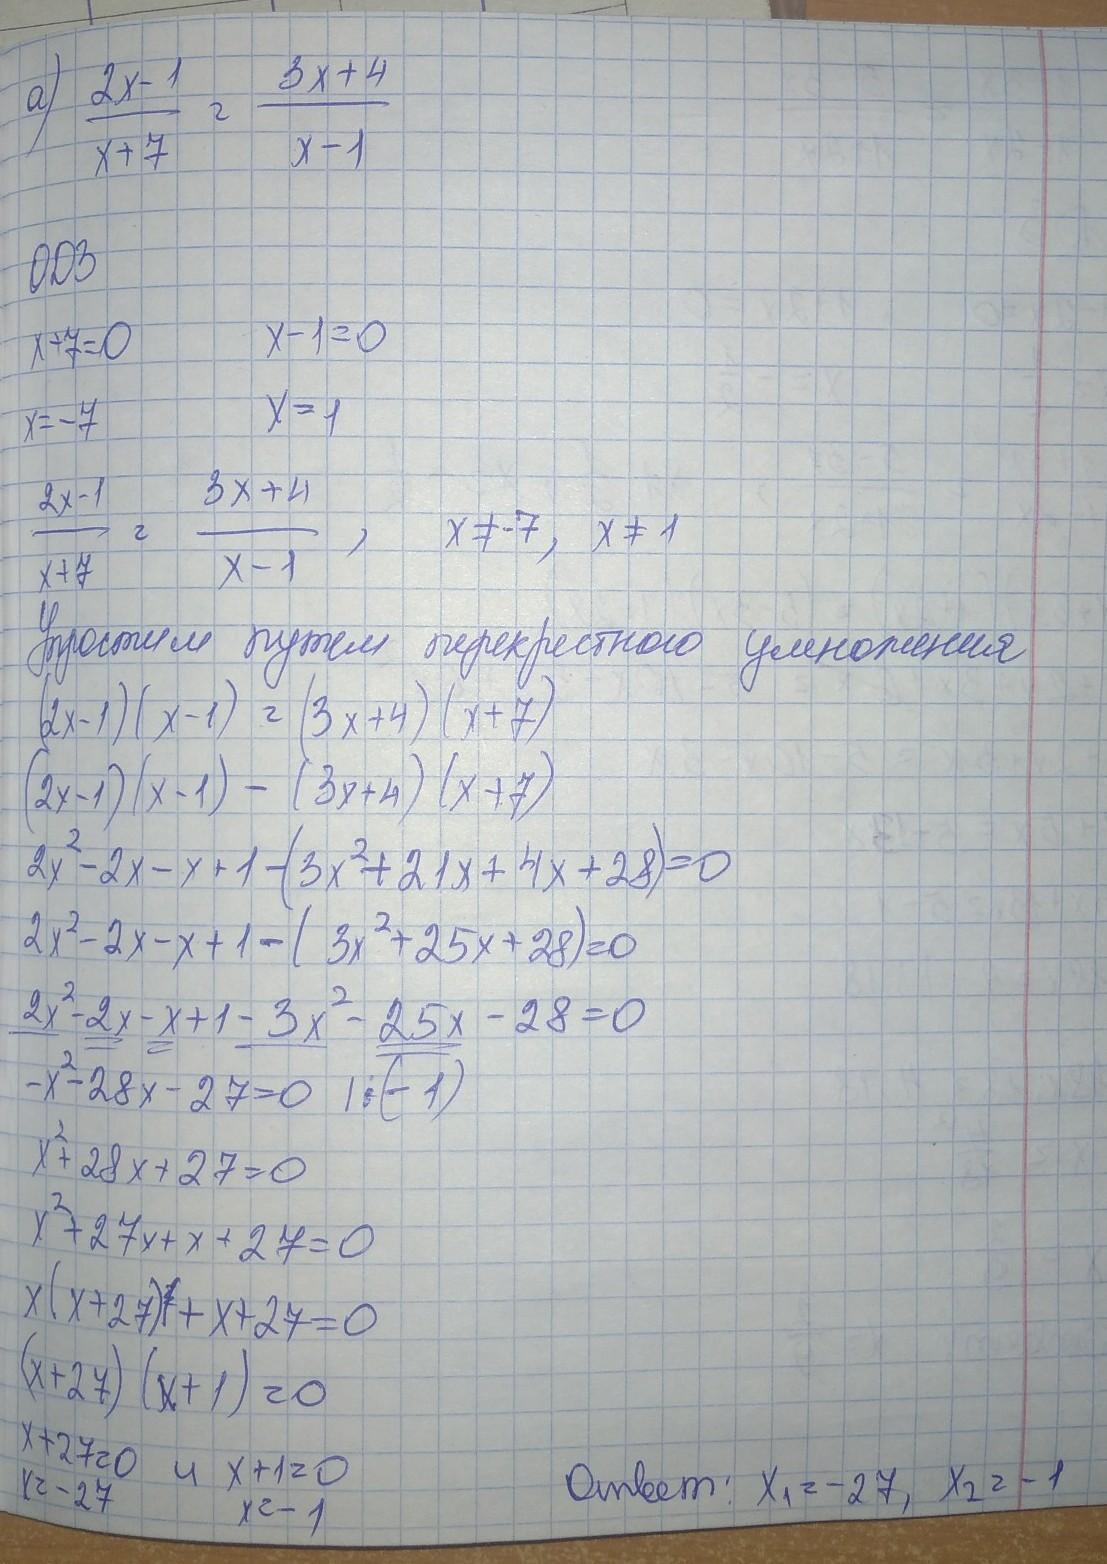 а) (2x-1)/(x+7) = (3x+4)/(x-1)
ОДЗ
x+7=0 x-1=0
x=-7 x=1
(2x-1)/(x+7) = (3x+4)/(x-1), x≠-7, x≠1
Упростим путем перекрестного умножения
(2x-1)(x-1) = (3x+4)(x+7)
(2x-1)(x-1) - (3x+4)(x+7)
2x²-2x-x+1-(3x²+21x+4x+28)=0
2x²-2x-x+1-(3x²+25x+28)=0
2x²-2x-x+1-3x²-25x-28=0
-x²-28x-27=0 |:(-1)
x²+28x+27=0
x²+27x+x+27=0
x(x+27)+x+27=0
(x+27)(x+1)=0
x+27=0 и x+1=0
x=-27 x=-1
Ответ: x₁=-27, x₂=-1